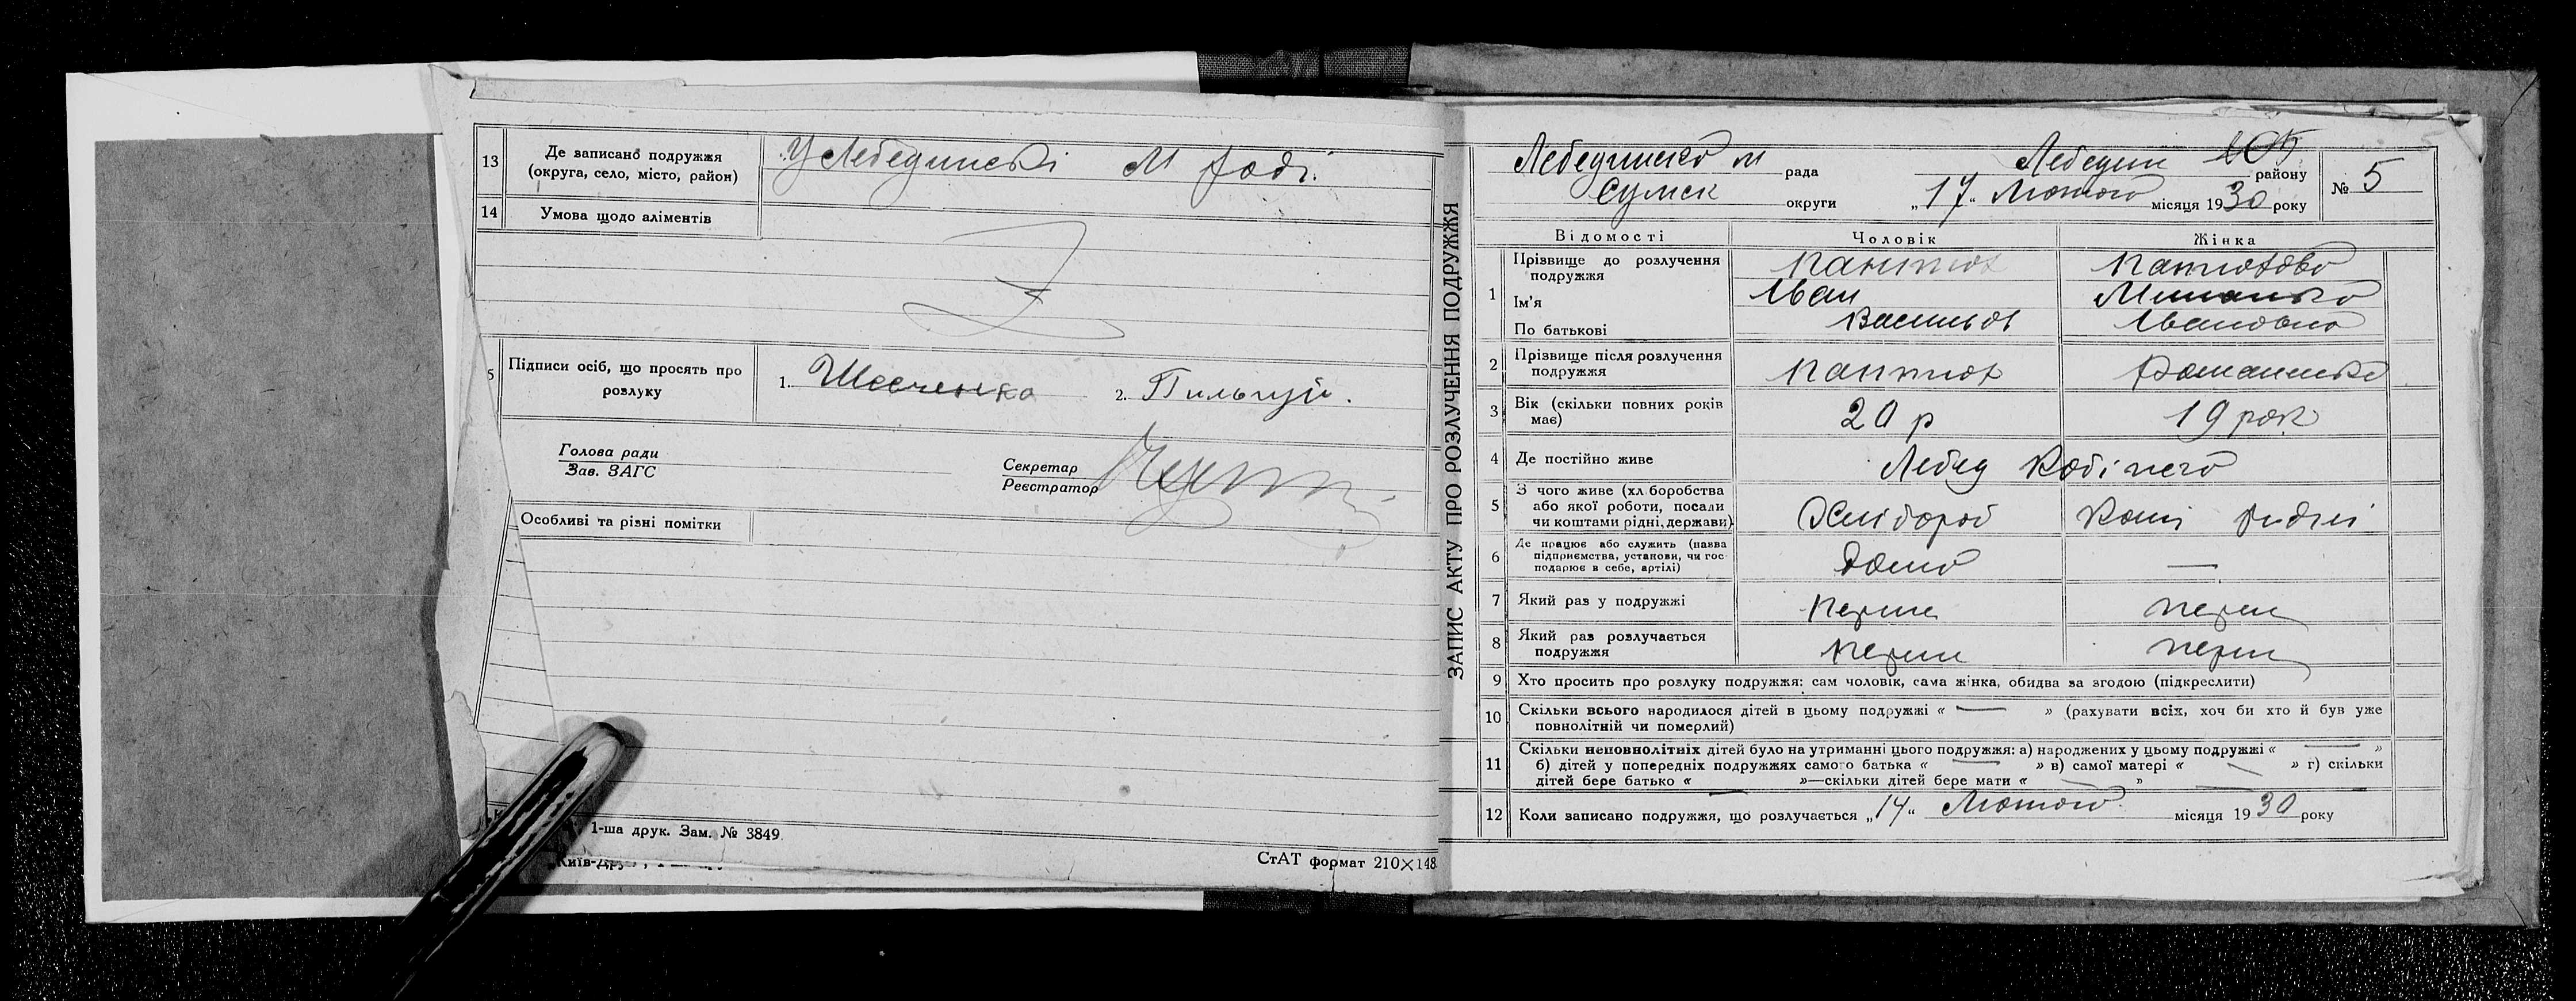 13 Де записано подружжя (округа, село, місто, район) У Лебединські М Раді
14 Умова щодо аліментів
5 Підписи осіб, що просять про розлуку 1. Шевченко 2. Пильгуй.
Голова ради
Зав. ЗАГС
Секретар
Реєстратор
Особливі та різні помітки
1-ша друк. Зам. № 3849.
СтАТ формат 210×148
ЗАПИС АКТУ ПРО РОЗЛУЧЕННЯ ПОДРУЖЖЯ
Лебединсько м рада Лебедин району № 5
Сумск округи „17“ Лютого місяця 1930 року
Відомості Чоловік Жінка
1 Прізвище до розлучення подружжя
Ім'я Іван
По батькові Васильов Івановна
2 Прізвище після розлучення подружжя
3 Вік (скільки повних років має) 20 р 19 рок
4 Де постійно живе Лебед
5 З чого живе (хліборобства або якої роботи, посади чи коштами рідні, держави) Хлібороб Кош рідні
6 Де працює або служить (назва підприємства, установи, чи господарює в себе, артілі) Дома —
7 Який раз у подружжі перши перш
8 Який раз розлучається подружжя перши перш
9 Хто просить про розлуку подружжя: сам чоловік, сама жінка, обидва за згодою (підкреслити)
10 Скільки всього народилося дітей в цьому подружжі « — » (рахувати всіх, хоч би хто й був уже
повнолітній чи померлий)
11 Скільки неповнолітніх дітей було на утриманні цього подружжя: а) народжених у цьому подружжі « — »
б) дітей у попередніх подружжях самого батька « — » в) самої матері « — » г) скільки
дітей бере батько « — »—скільки дітей бере мати « — »
12 Коли записано подружжя, що розлучається „14“ Лютого місяця 1930 року